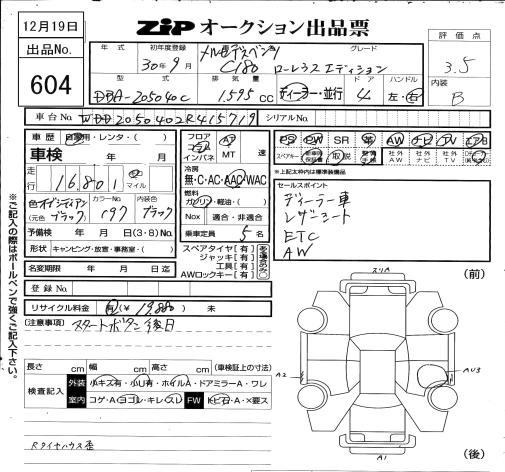 12月19日
出品No.
604
ZIP オークション出品票
評価点
3.5
内装
B
年式 初年度登録 車名 グレード
30年9月 メルセデスベンツ C180 ローレウスエディション
型式 排気量 ドア ハンドル
DBA-205040C 1,595 cc ディーラー・並行 4 左・右
車台No. WDD2050402R415719 シリアルNo.
車歴 自家用・レンタ・( )
車検 年 月
走行 16,801 マイル
色 オブシディアンブラック (元色 ) カラーNo. 197 内装色 ブラック
予備検 年 月 日(3・8)No.
形状 キャンピング・放宣・事務室・( )
名変期限 年 月 日迄
登録No.
リサイクル料金 有(¥ ) 未
フロア コラム インパネ AT MT 速
冷房 無・C・AC・AAC・WAC
燃料 ガソリン・軽油・( )
Nox 適合・非適合
乗車定員 5 名
スペアタイヤ[有]
ジャッキ[有]
工具[有]
AWロックキー[有]
PS PW SR 革 AW ナビ TV エアB
スペアキー 取説 社外AW 社外ナビ 社外TV
*上記太枠内は標準装備品
セールスポイント
ディーラー車
レザーシート
ETC
AW
[注意事項] スタートボタン後日
長さ cm 幅 cm 高さ cm (車検証上の寸法)
検査記入 外装 小キズ有・小U有・ホイルA・ドアミラーA・ワレ
室内 コゲA・ヨゴレ・キレ・スレ FW トビ石・A・×要ス
Rタイヤハウス歪
ご記入の際はボールペンで強くご記入下さい。
(前)
スリA
A2
AU3
A1
(後)